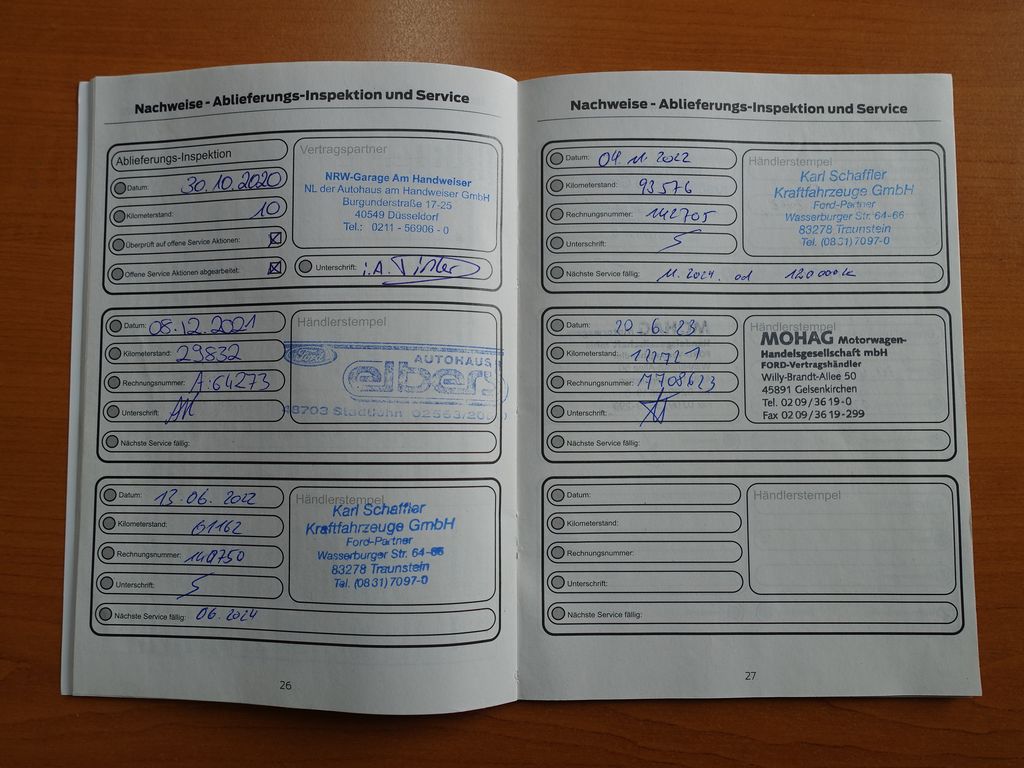 Nachweise - Ablieferungs-Inspektion und Service
Ablieferungs-Inspektion
Datum: 30.10.2020
Kilometerstand: 10
Überprüft auf offene Service Aktionen: ☒
Offene Service Aktionen abgearbeitet: ☒
Vertragspartner
NRW-Garage Am Handweiser
NL der Autohaus am Handweiser GmbH
Burgunderstraße 17-25
40549 Düsseldorf
Tel.: 0211 - 56906 - 0
Unterschrift: i.A.
Datum: 08.12.2021
Kilometerstand: 29832
Rechnungsnummer: A-64273
Unterschrift:
Nächste Service fällig:
Händlerstempel
Ford
AUTOHAUS
elbers
48703 Stadtlohn 02563/20
Datum: 13.06.2022
Kilometerstand: 61162
Rechnungsnummer: 140750
Unterschrift:
Nächste Service fällig: 06.2024
Händlerstempel
Karl Schaffler
Kraftfahrzeuge GmbH
Ford-Partner
Wasserburger Str. 64-66
83278 Traunstein
Tel. (0831) 7097-0
26
Nachweise - Ablieferungs-Inspektion und Service
Datum: 04 11 2022
Kilometerstand: 93576
Rechnungsnummer: 142705
Unterschrift:
Nächste Service fällig: 11.2024 od 120000k
Händlerstempel
Karl Schaffler
Kraftfahrzeuge GmbH
Ford-Partner
Wasserburger Str. 64-66
83278 Traunstein
Tel. (0831) 7097-0
Datum: 20.6.23
Kilometerstand: 121721
Rechnungsnummer:
Unterschrift:
Nächste Service fällig:
Händlerstempel
MOHAG Motorwagen-
Handelsgesellschaft mbH
FORD-Vertragshändler
Willy-Brandt-Allee 50
45891 Gelsenkirchen
Tel. 02 09 / 36 19 - 0
Fax 02 09 / 36 19 - 299
Datum:
Kilometerstand:
Rechnungsnummer:
Unterschrift:
Nächste Service fällig:
Händlerstempel
27